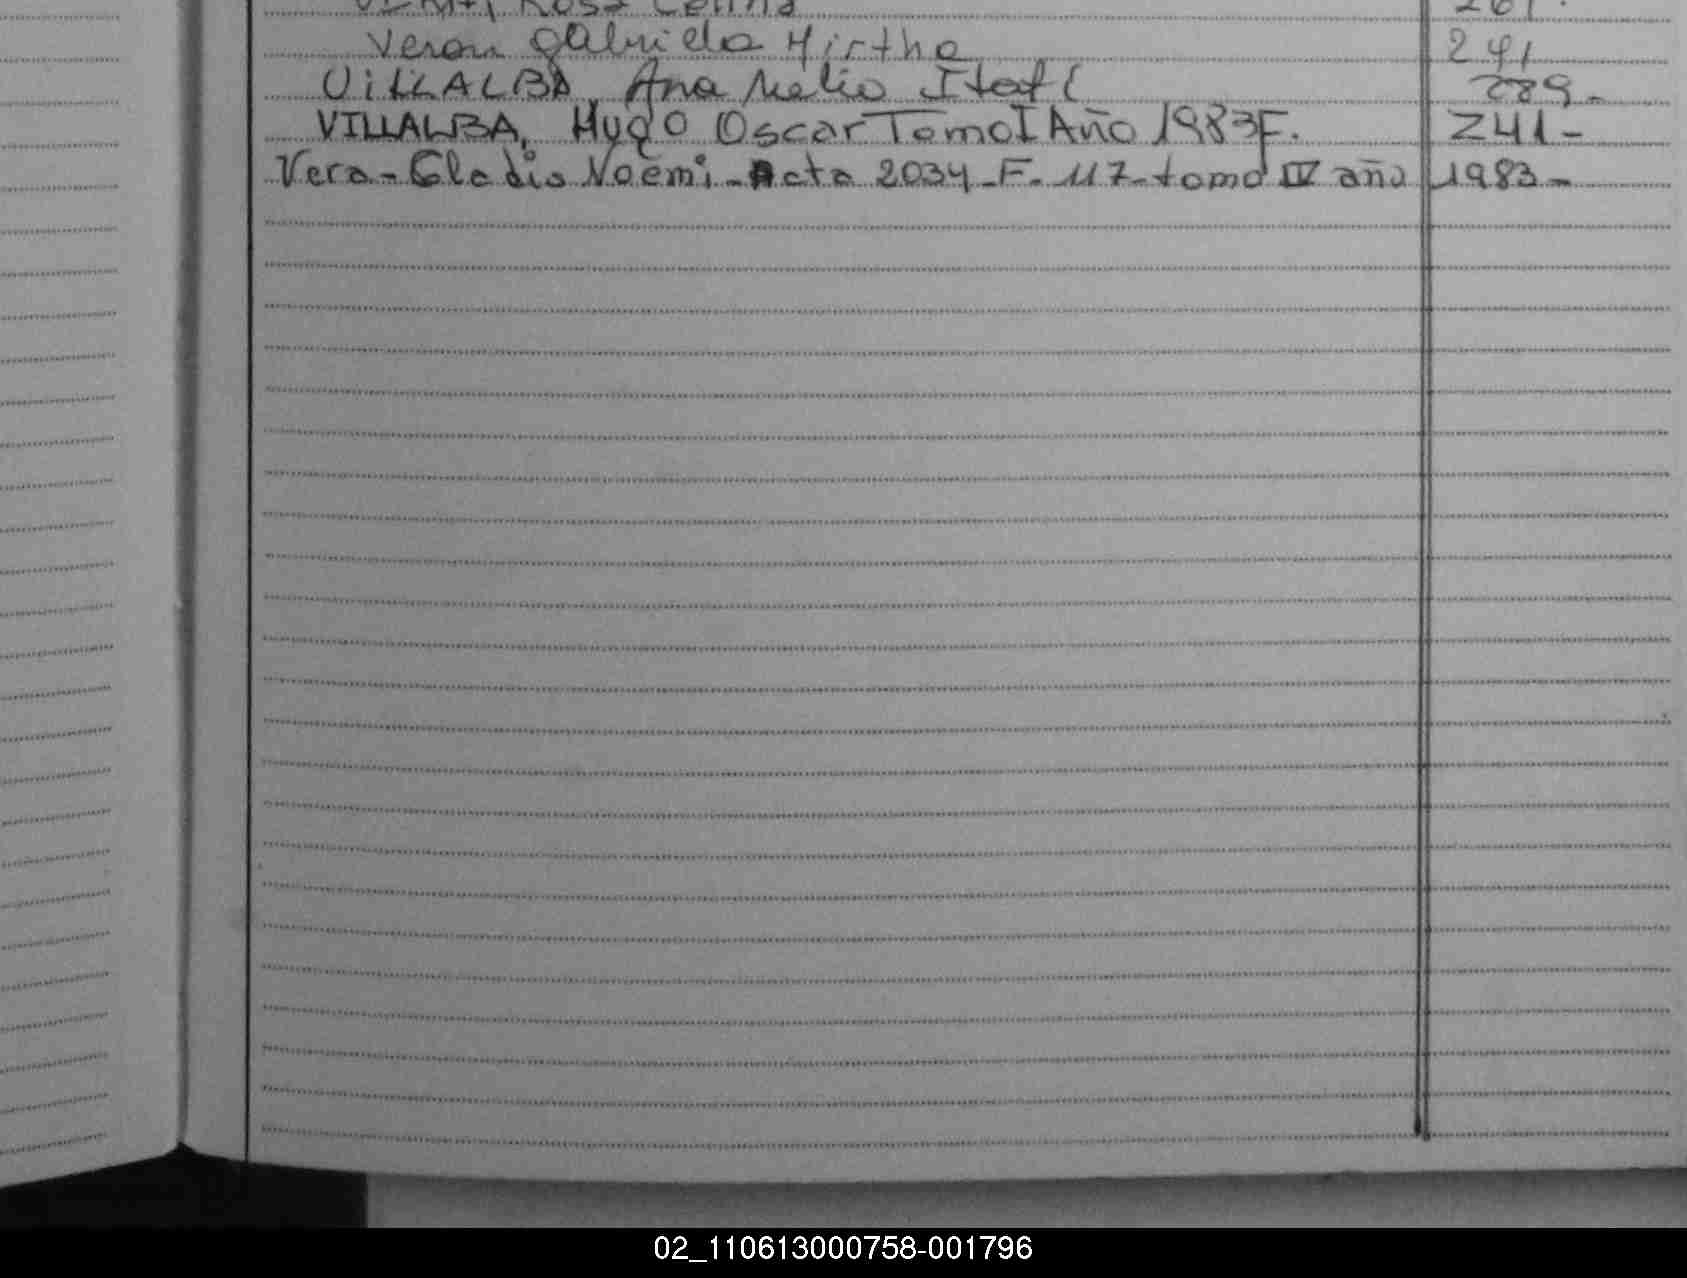 Rosa Celina 261.
Veron Gabriela Mirtha 291
VILLALBA, Ana Itatí 289-
VILLALBA, Hugo Oscar Tomo I Año 1983 F. 241-
Vera - Gladis Noemi - Acta 2034 - F. 117 - tomo IV año 1983-
02_110613000758-001796